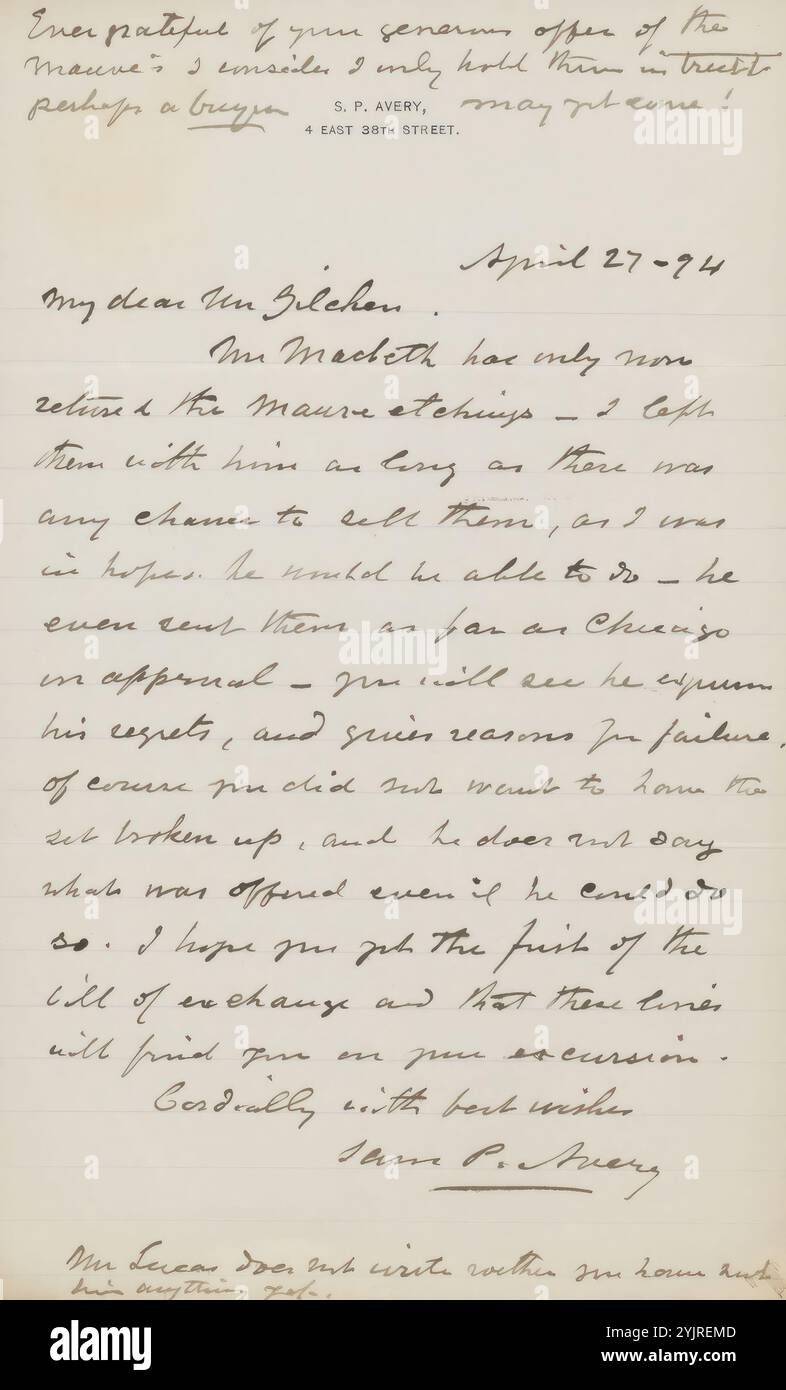 Ever grateful of your generous offer of the
Mauve's I consider I only hold them in trust
perhaps a buyer may yet come!
S. P. AVERY,
4 EAST 38TH STREET.
April 27 - 94
My dear Mr Zilcken.
Mr Macbeth has only now
retured the Mauve etchings - I left
them with him as long as there was
any chance to sell them, as I was
in hopes he would be able to do - he
even sent them as far as Chicago
on approval - you will see he express
his regrets, and gives reasons for failure.
of course you did not want to have the
set broken up, and he does not say
what was offered even if he could do
so. I hope you got the first of the
bill of exchange and that these lines
will find you on your excursion.
Cordially with best wishes
Sam P. Avery
Mr Lucas does not write wether you have sent
him anything yet.
alamy
alamy
alamy
alamy
alamy
Image ID: 2YJREMD
www.alamy.com